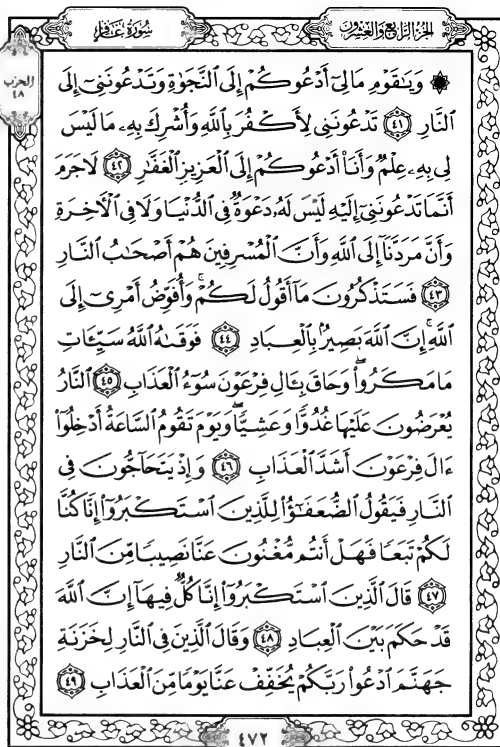 سُورَةُ غَافِرٍ
الجُزْءُ الرَّابِعُ وَالعِشْرُونَ
الحزب
٤٨
۞ وَيَٰقَوْمِ مَالِىٓ أَدْعُوكُمْ إِلَى ٱلنَّجَوٰةِ وَتَدْعُونَنِىٓ إِلَى
ٱلنَّارِ ٤١ تَدْعُونَنِى لِأَكْفُرَ بِٱللَّهِ وَأُشْرِكَ بِهِۦ مَا لَيْسَ
لِى بِهِۦ عِلْمٌ وَأَنَا۠ أَدْعُوكُمْ إِلَى ٱلْعَزِيزِ ٱلْغَفَّٰرِ ٤٢ لَا جَرَمَ
أَنَّمَا تَدْعُونَنِىٓ إِلَيْهِ لَيْسَ لَهُۥ دَعْوَةٌ فِى ٱلدُّنْيَا وَلَا فِى ٱلْأَخِرَةِ
وَأَنَّ مَرَدَّنَآ إِلَى ٱللَّهِ وَأَنَّ ٱلْمُسْرِفِينَ هُمْ أَصْحَٰبُ ٱلنَّارِ
٤٣ فَسَتَذْكُرُونَ مَآ أَقُولُ لَكُمْ ۚ وَأُفَوِّضُ أَمْرِىٓ إِلَى
ٱللَّهِ ۚ إِنَّ ٱللَّهَ بَصِيرٌۢ بِٱلْعِبَادِ ٤٤ فَوَقَىٰهُ ٱللَّهُ سَيِّـَٔاتِ
مَا مَكَرُوا۟ ۖ وَحَاقَ بِـَٔالِ فِرْعَوْنَ سُوٓءُ ٱلْعَذَابِ ٤٥ ٱلنَّارُ
يُعْرَضُونَ عَلَيْهَا غُدُوًّا وَعَشِيًّا ۖ وَيَوْمَ تَقُومُ ٱلسَّاعَةُ أَدْخِلُوٓا۟
ءَالَ فِرْعَوْنَ أَشَدَّ ٱلْعَذَابِ ٤٦ وَإِذْ يَتَحَآجُّونَ فِى
ٱلنَّارِ فَيَقُولُ ٱلضُّعَفَٰٓؤُا۟ لِلَّذِينَ ٱسْتَكْبَرُوٓا۟ إِنَّا كُنَّا
لَكُمْ تَبَعًا فَهَلْ أَنتُم مُّغْنُونَ عَنَّا نَصِيبًا مِّنَ ٱلنَّارِ
٤٧ قَالَ ٱلَّذِينَ ٱسْتَكْبَرُوٓا۟ إِنَّا كُلٌّ فِيهَآ إِنَّ ٱللَّهَ
قَدْ حَكَمَ بَيْنَ ٱلْعِبَادِ ٤٨ وَقَالَ ٱلَّذِينَ فِى ٱلنَّارِ لِخَزَنَةِ
جَهَنَّمَ ٱدْعُوا۟ رَبَّكُمْ يُخَفِّفْ عَنَّا يَوْمًا مِّنَ ٱلْعَذَابِ ٤٩
٤٧٢